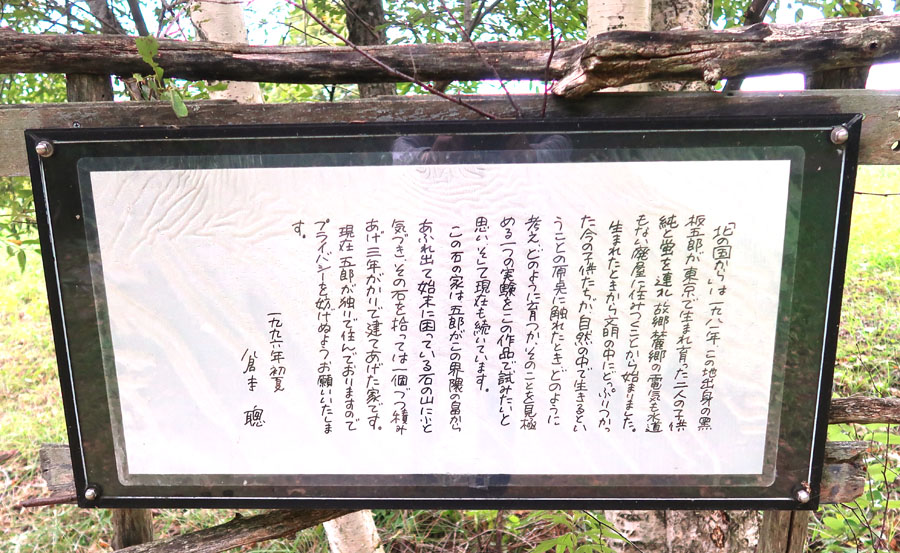 「北の国から」は一九八一年、この地出身の黒
板五郎が、東京で生まれ育った二人の子供
純と蛍を連れ、故郷麓郷の電気も水道
もない廃屋に住みつくことから始まりました。
生まれたときから文明の中にどっぷりつかっ
た今の子供たちが、自然の中で生きるとい
うことの原点に触れたとき、どのように
考え、どのように育つか、そのことを見極
める一つの実験をこの作品で試みたいと
思い、そして現在も続いています。
この石の家は五郎がこの界隈の畠から
あふれ出て始末に困っている石の山にふと
気づき、その石を拾っては一個づつ積み
あげ、三年がかりで建てあげた家です。
現在、五郎が独りで住んでおりますので
プライバシーを妨げぬようお願いいたしま
す。
一九九六年初夏
倉本 聰